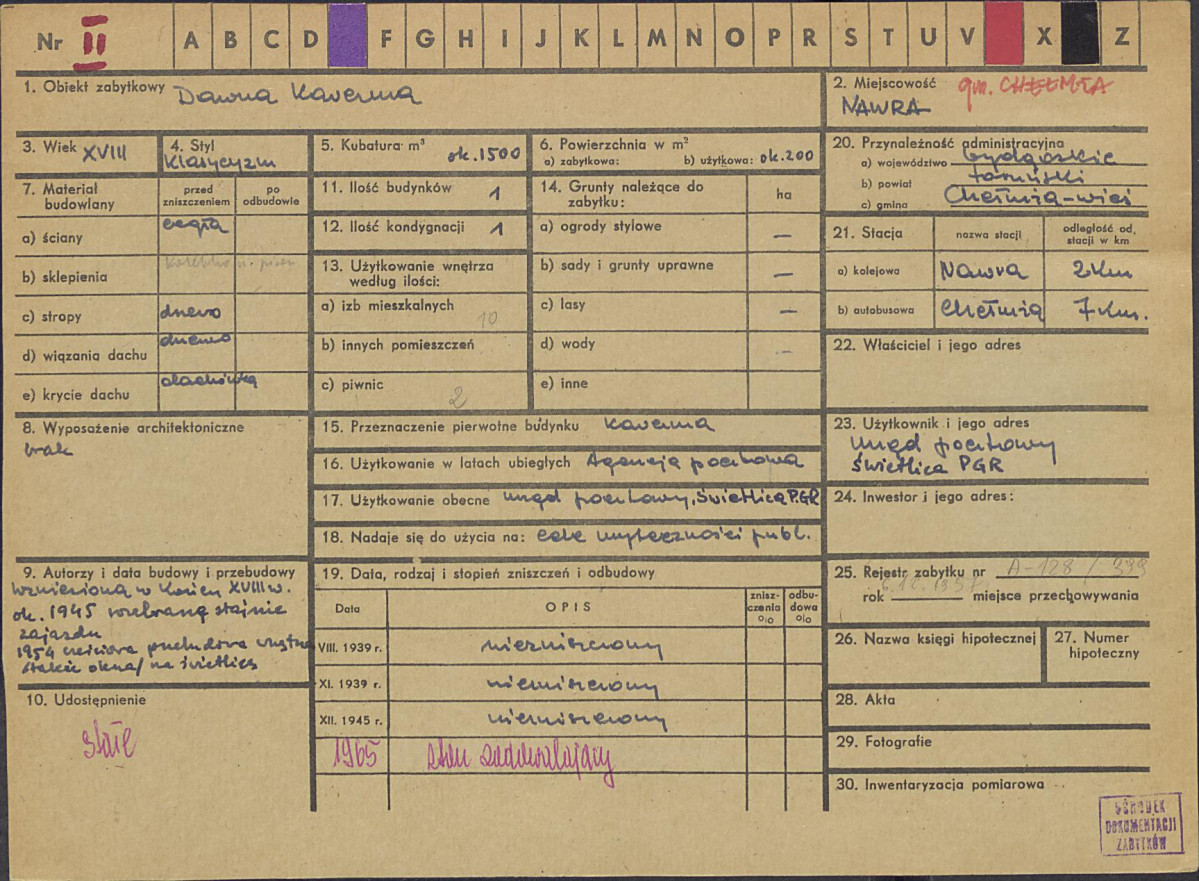 Nr II A B C D F G H I J K L M N O P R S T U V X Z
1. Obiekt zabytkowy Dawna Kawerma
2. Miejscowość gm. CHEŁMŻA
NAWRA
3. Wiek XVIII
4. Styl
Klasycyzm
5. Kubatura m³ ok. 1500
6. Powierzchnia w m²
a) zabytkowa: b) użytkowa: ok. 200
20. Przynależność administracyjna
a) województwo bydgoskie
b) powiat toruński
c) gmina Chełmża-wieś
7. Materiał
budowlany
przed
zniszczeniem
po
odbudowie
a) ściany cegła
b) sklepienia
c) stropy drewo
d) wiązania dachu drewno
e) krycie dachu dachówka
11. Ilość budynków 1
12. Ilość kondygnacji 1
13. Użytkowanie wnętrza
według ilości:
a) izb mieszkalnych 10
b) innych pomieszczeń
c) piwnic 2
14. Grunty należące do
zabytku:
ha
a) ogrody stylowe —
b) sady i grunty uprawne —
c) lasy —
d) wody —
e) inne
21. Stacja
nazwa stacji
odległość od
stacji w km
a) kolejowa Nawra 2 km
b) autobusowa Chełmża 7 km.
22. Właściciel i jego adres
8. Wyposażenie architektoniczne
brak
15. Przeznaczenie pierwotne budynku Kawerma
16. Użytkowanie w latach ubiegłych Agencja pocztowa
17. Użytkowanie obecne urząd pocztowy, Świetlica P.G.R
18. Nadaje się do użycia na: cele użyteczności publ.
23. Użytkownik i jego adres
urząd pocztowy
świetlica PGR
24. Inwestor i jego adres:
9. Autorzy i data budowy i przebudowy
wzniesiona w końcu XVIII w.
ok. 1945 rozebraną stajnię
zajazdu
1954 częściowa przebudowa wnętrza
/także okna/ na świetlicę
19. Data, rodzaj i stopień zniszczeń i odbudowy
Data
OPIS
znisz-
czenia
%
odbu-
dowa
%
VIII. 1939 r. niezniszczony
XI. 1939 r. niezniszczony
XII. 1945 r. niezniszczony
1965 stan zadowalający
25. Rejestr zabytku nr A-128/399
rok miejsce przechowywania
26. Nazwa księgi hipotecznej
27. Numer
hipoteczny
10. Udostępnienie
stałe
28. Akta
29. Fotografie
30. Inwentaryzacja pomiarowa
OŚRODEK
DOKUMENTACJI
ZABYTKÓW